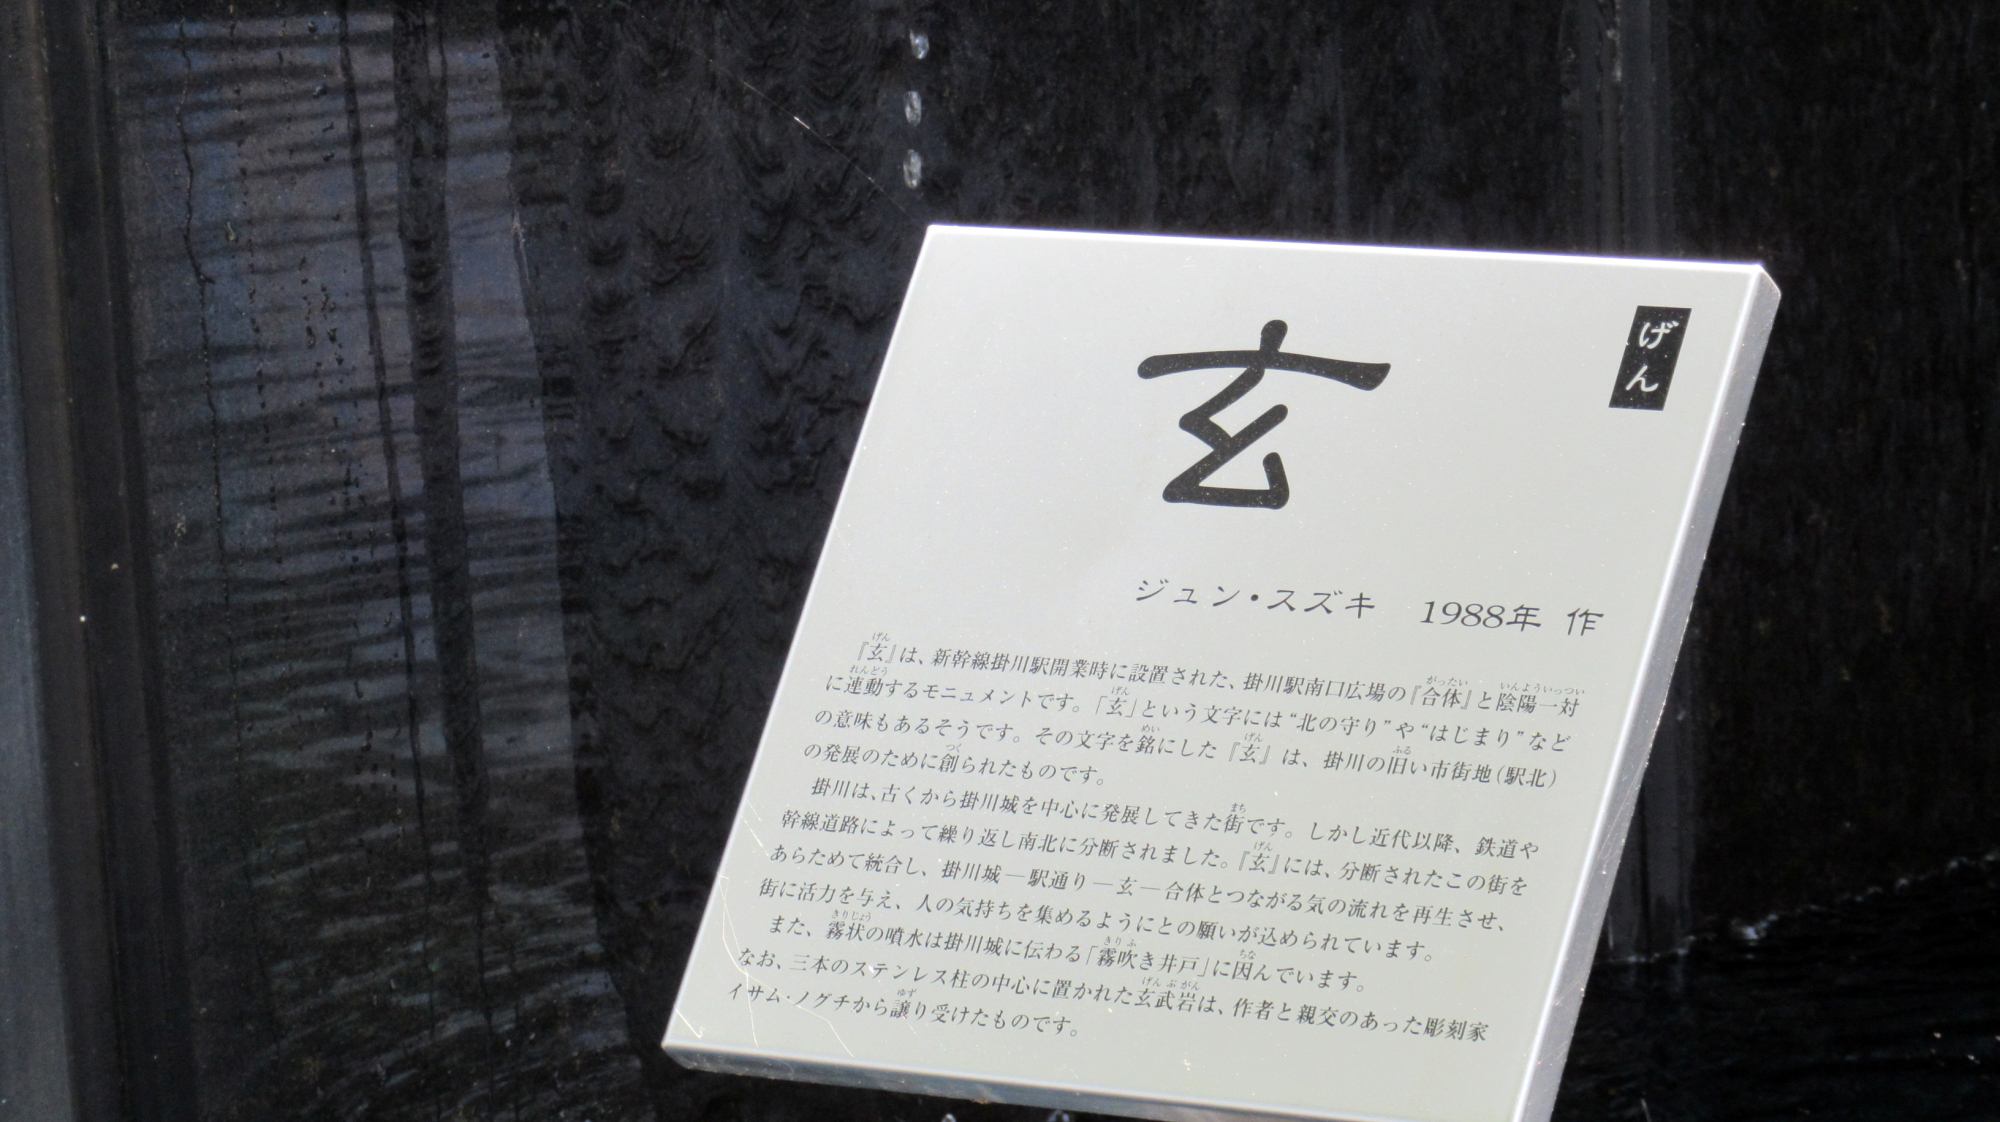 玄
げん
ジュン・スズキ 1988年 作
『玄』は、新幹線掛川駅開業時に設置された、掛川駅南口広場の『合体』と陰陽一対
に連動するモニュメントです。「玄」という文字には“北の守り”や“はじまり”など
の意味もあるそうです。その文字を銘にした『玄』は、掛川の旧い市街地(駅北)
の発展のために創られたものです。
掛川は、古くから掛川城を中心に発展してきた街です。しかし近代以降、鉄道や
幹線道路によって繰り返し南北に分断されました。『玄』には、分断されたこの街を
あらためて統合し、掛川城―駅通り―玄―合体とつながる気の流れを再生させ、
街に活力を与え、人の気持ちを集めるようにとの願いが込められています。
また、霧状の噴水は掛川城に伝わる「霧吹き井戸」に因んでいます。
なお、三本のステンレス柱の中心に置かれた玄武岩は、作者と親交のあった彫刻家
イサム・ノグチから譲り受けたものです。